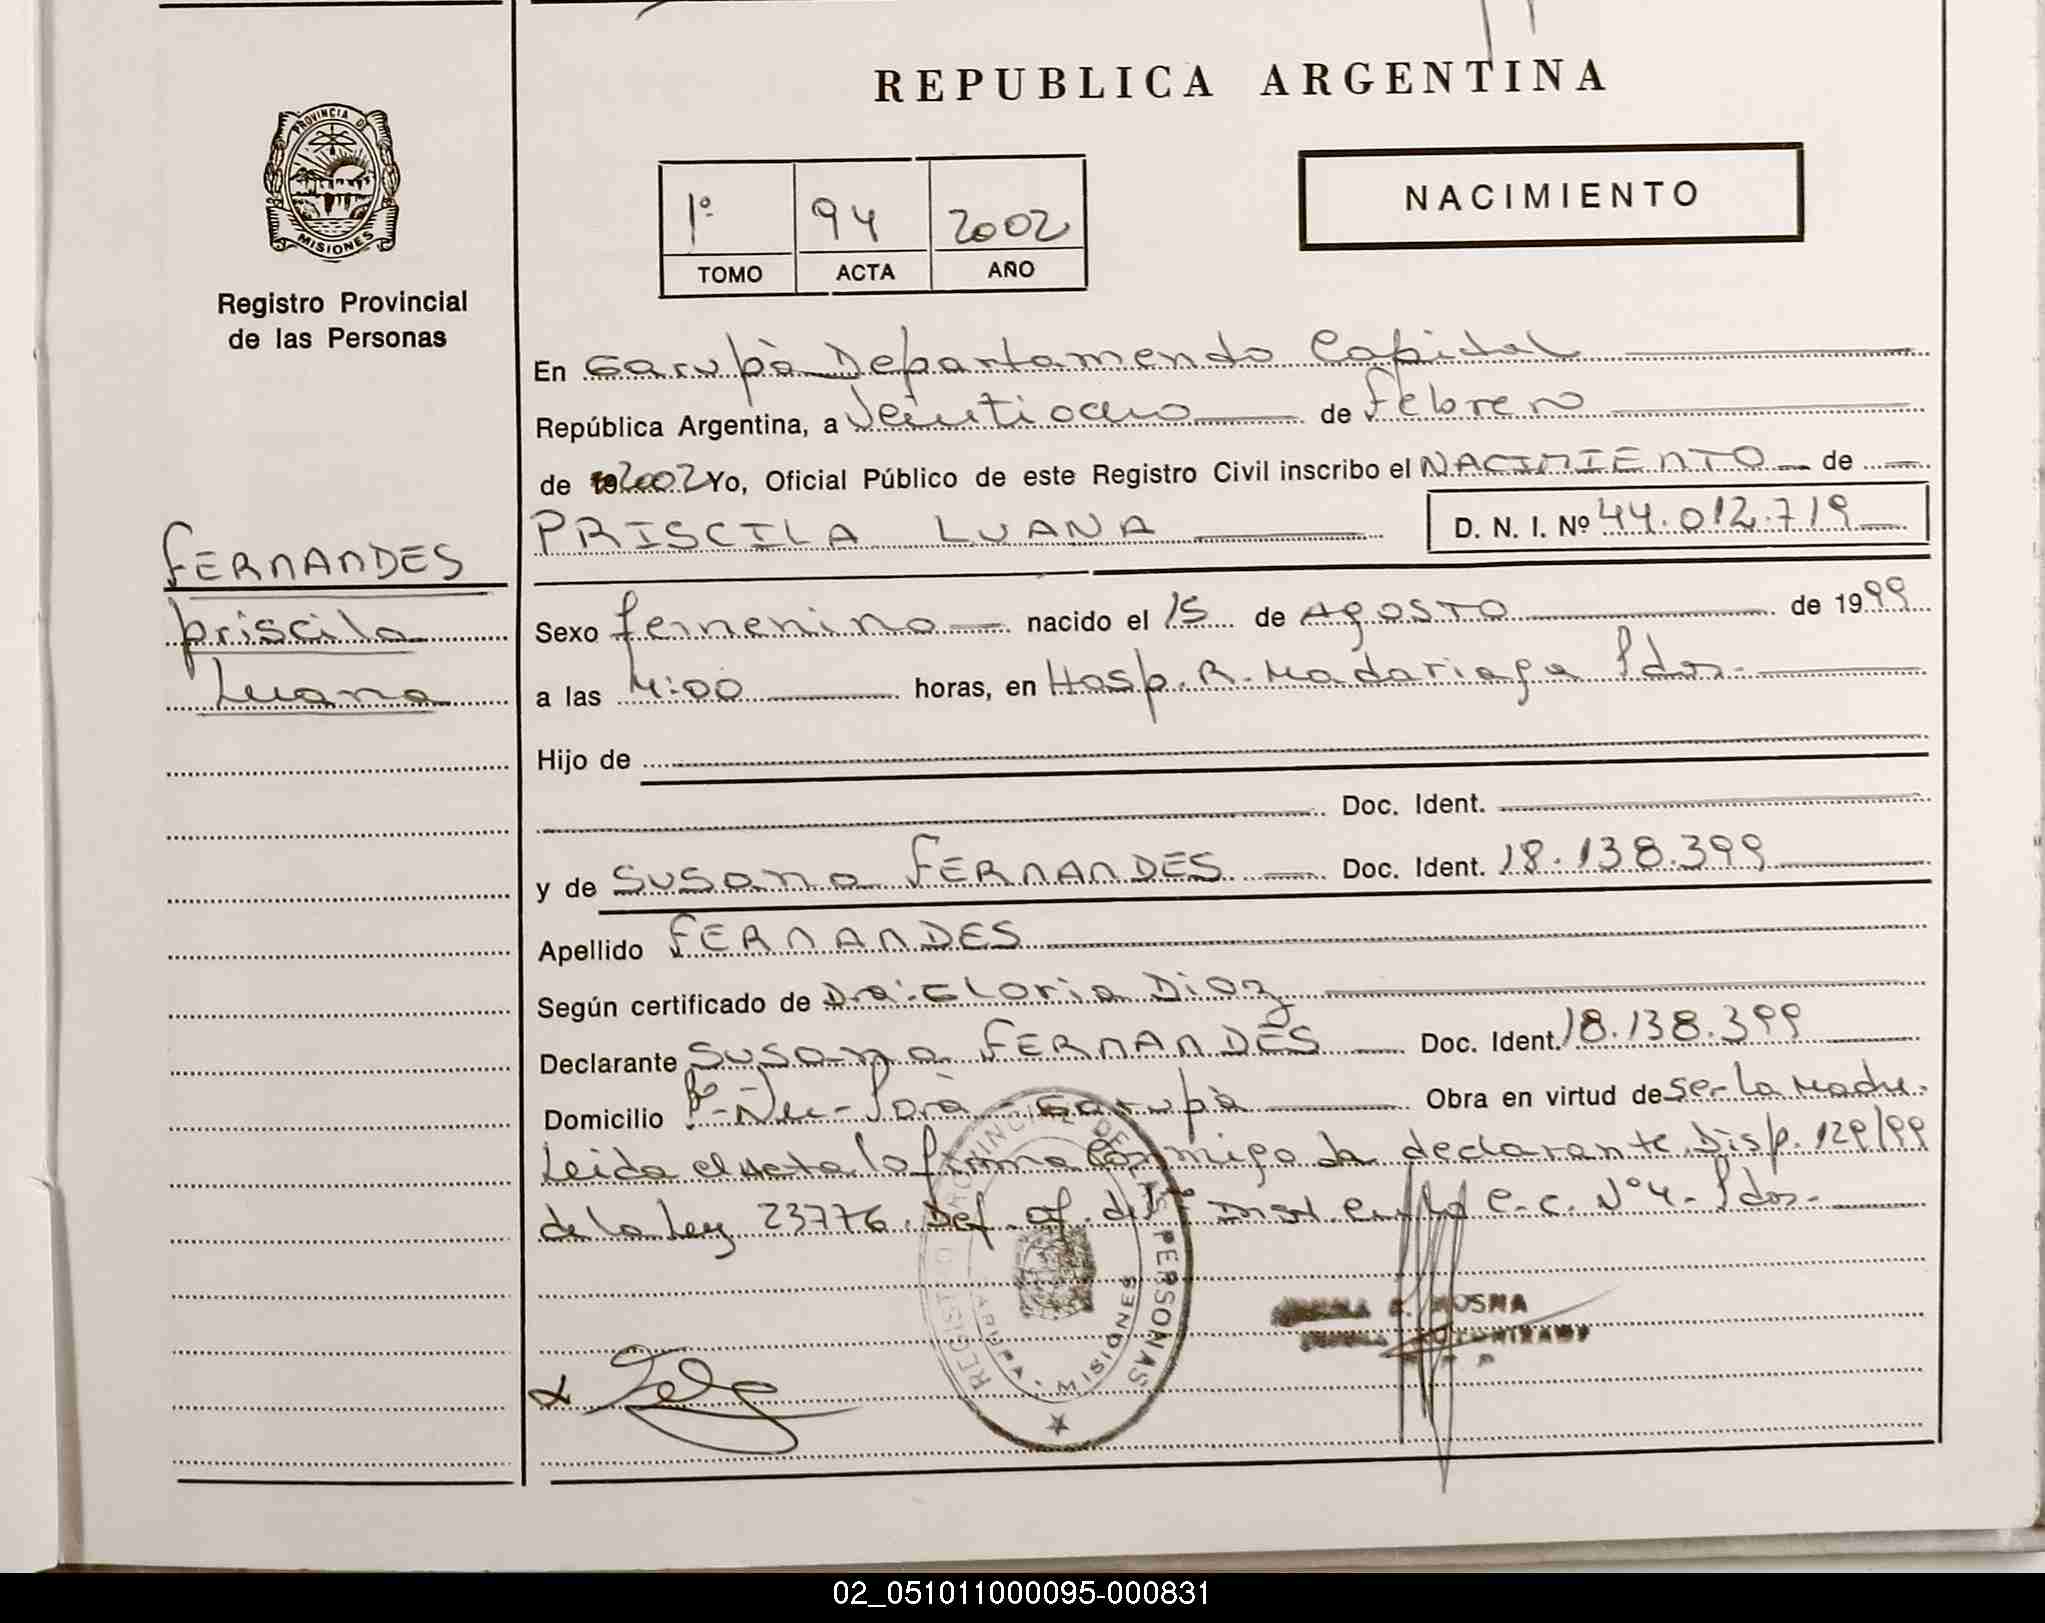 REPUBLICA ARGENTINA
PROVINCIA D
MISIONES
Registro Provincial
de las Personas
1º 94 2002
TOMO ACTA AÑO
NACIMIENTO
En Garupà Departamento Capital
República Argentina, a Veintiocho de Febrero
de 2002 Yo, Oficial Público de este Registro Civil inscribo el NACIMIENTO de
PRISCILA LUANA D. N. I. Nº 44.012.719
FERNANDES
Priscila
Luana
Sexo femenino nacido el 15 de AGOSTO de 1999
a las 4:00 horas, en Hosp. R. Madariaga Pdas.
Hijo de
Doc. Ident.
y de Susana FERNANDES Doc. Ident. 18.138.399
Apellido FERNANDES
Según certificado de Dra. Gloria Diaz
Declarante Susana FERNANDES Doc. Ident. 18.138.399
Domicilio Bº-Ñu-Porà-Garupà Obra en virtud de ser la Madre.
Leida el Acta la firma conmigo la declarante Disp. 129/99
de la Ley 23776. Def. of. del Inst. C.C. Nº 4- Pdas.
REGISTRO PROVINCIAL DE LAS PERSONAS
GARUPA - MISIONES
02_051011000095-000831